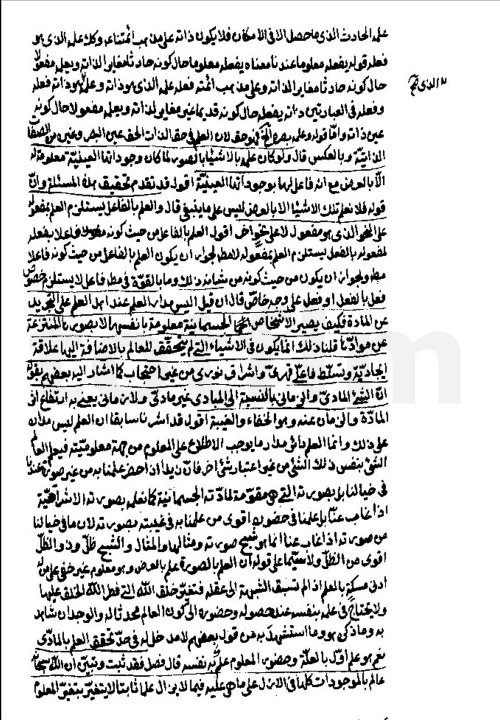 علم الحادث الذى ما حصل الا فى الامكان فلا يكون ذاته على مذهب ائمتنا عم وكل علم الذى هو
فعله قوله يفعله معلوما عندنا معناه يفعله معلوما حال كونه حادثا مغاير الذاته ويعلمه مفعولا
حال كونه حادثا مغايرا لذاته وعلى مذهب ائمته فعله علمه الذى هو ذاته وعلمه ذاته فعله
وفعله فى العبارتين ذاته يفعله حال كونه قديما غير مغاير لذاته ويعلمه مفعولا حال كونه
عين ذاته واما قوله وعلى فهو حق لان العلم فى حق الذات الحق عين البصر وغيره من الصفات
الذاتية وبالعكس قال ولو كان علمه بالاشياء بالصور لما كان وجوداتها العينية معلومة له
الا بالعرض مع انه فاعل لها بوجوداتها العينية اقول قد تقدم تحقيق هذه المسئلة وان
قوله فلا نعلم تلك الاشياء الا بالعرض ليس على ما ينبغى قال والعلم بالفاعل يستلزم العلم بمفعوله
على النحو الذى هو مفعول لا على نحو اخر اقول هذا العلم بالفاعل من حيث كونه فاعلا بفعله
لمفعوله بالفعل يستلزم العلم بمفعوله لا مطلقا لجواز ان يكون العلم بالفاعل من حيث كونه فاعلا
مطلقا ولجواز ان يكون من حيث كونه من شانه ذلك وما بالقوة فى مطلق فاعل لا يستلزم خصوص
فعل بالفعل او فعل على وجه خاص قال ان قيل اليس مدار العلم عندهم العلم على التجريد
عن المادة فكيف يصير الاشخاص الجسمانية معلومة بانفسها لا بصورها المنتزعة
عن موادها قلنا ذلك انما يكون فى الاشياء التى لم يتحقق للعالم بالاضافة اليها علاقة
ايجادية وتسلط فاعلى قهرى واشراق نورى من غير احتجاب كما اشار اليه بعضهم بقوله
ان الشئ المادى والزمانى بالنسبة الى المبادى غير مادى ولا زمانى يعنى به ارتفاع اثر
المادة والزمان عنه وهو الخفاء والغيبة اقول قد اشرنا سابقا ان العلم ليس مداره
على ذلك وانما العلم باى مدار ما يوجب الاطلاع على المعلوم من جهة معلوميته فيعلم العالم
الشئ بنفس ذلك الشئ من غير اعتبار شئ اخر فان زيدا ان حضر علمنا به من غير صورة عندنا
فى خيالنا بل بصورته التى هى مقومة لمادته الجسمانية كما نعلم بصورته الاشراقية
اذا غاب عنا بل علمنا فى حضوره اقوى من علمنا به فى غيبته بصورته لان ما فى خيالنا
من صورته اذا غاب عنا انما هو شبح صورته ومثالها والمثال والشبح ظل وذو الظل
اقوى من الظل ولا سيما على قوله ان العلم بالصورة علم بالعرض وهو معلوم غير خفى على من له
ادنى مسكة بالعلم اذا لم تسبق الشبهة الى عقله فتغير خلق الله التى فطر الله الخلق عليها
ولا يحتاج فى علمه بنفسه عند حصوله وحضوره الى كون العالم محدثا له والوجدان شاهد
به وما ذكره هو وما استشهد به من قول بعضهم لا مدخل له فى حد تحقق العلم بالمادى
نعم هو علم اول بالعلة وحضور المعلوم علم به نفسه قال فصل فقد ثبت وتبين ان الله سبحانه
عالم بالموجودات كلها فى الازل على ما هى عليه فيما لا يزال علما ثابتا لا يتغير بتغير المعلوم